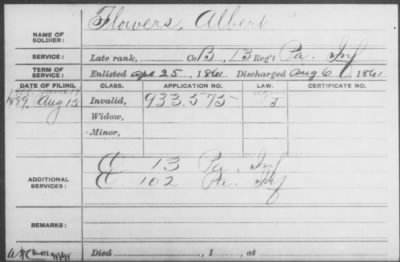 NAME OF SOLDIER: Flowers, Albert
SERVICE: Late rank, Co B, 13 Reg't Pa. Inf
TERM OF SERVICE: Enlisted Apr 25, 1861 Discharged Aug 6, 1861
DATE OF FILING. CLASS. APPLICATION NO. LAW. CERTIFICATE NO.
1889, Aug 15 Invalid, 933.575 J
Widow,
Minor,
ADDITIONAL SERVICES: E 13 Pa. Inf
E 102 Pa. Inf
REMARKS:
Died , 1 , at